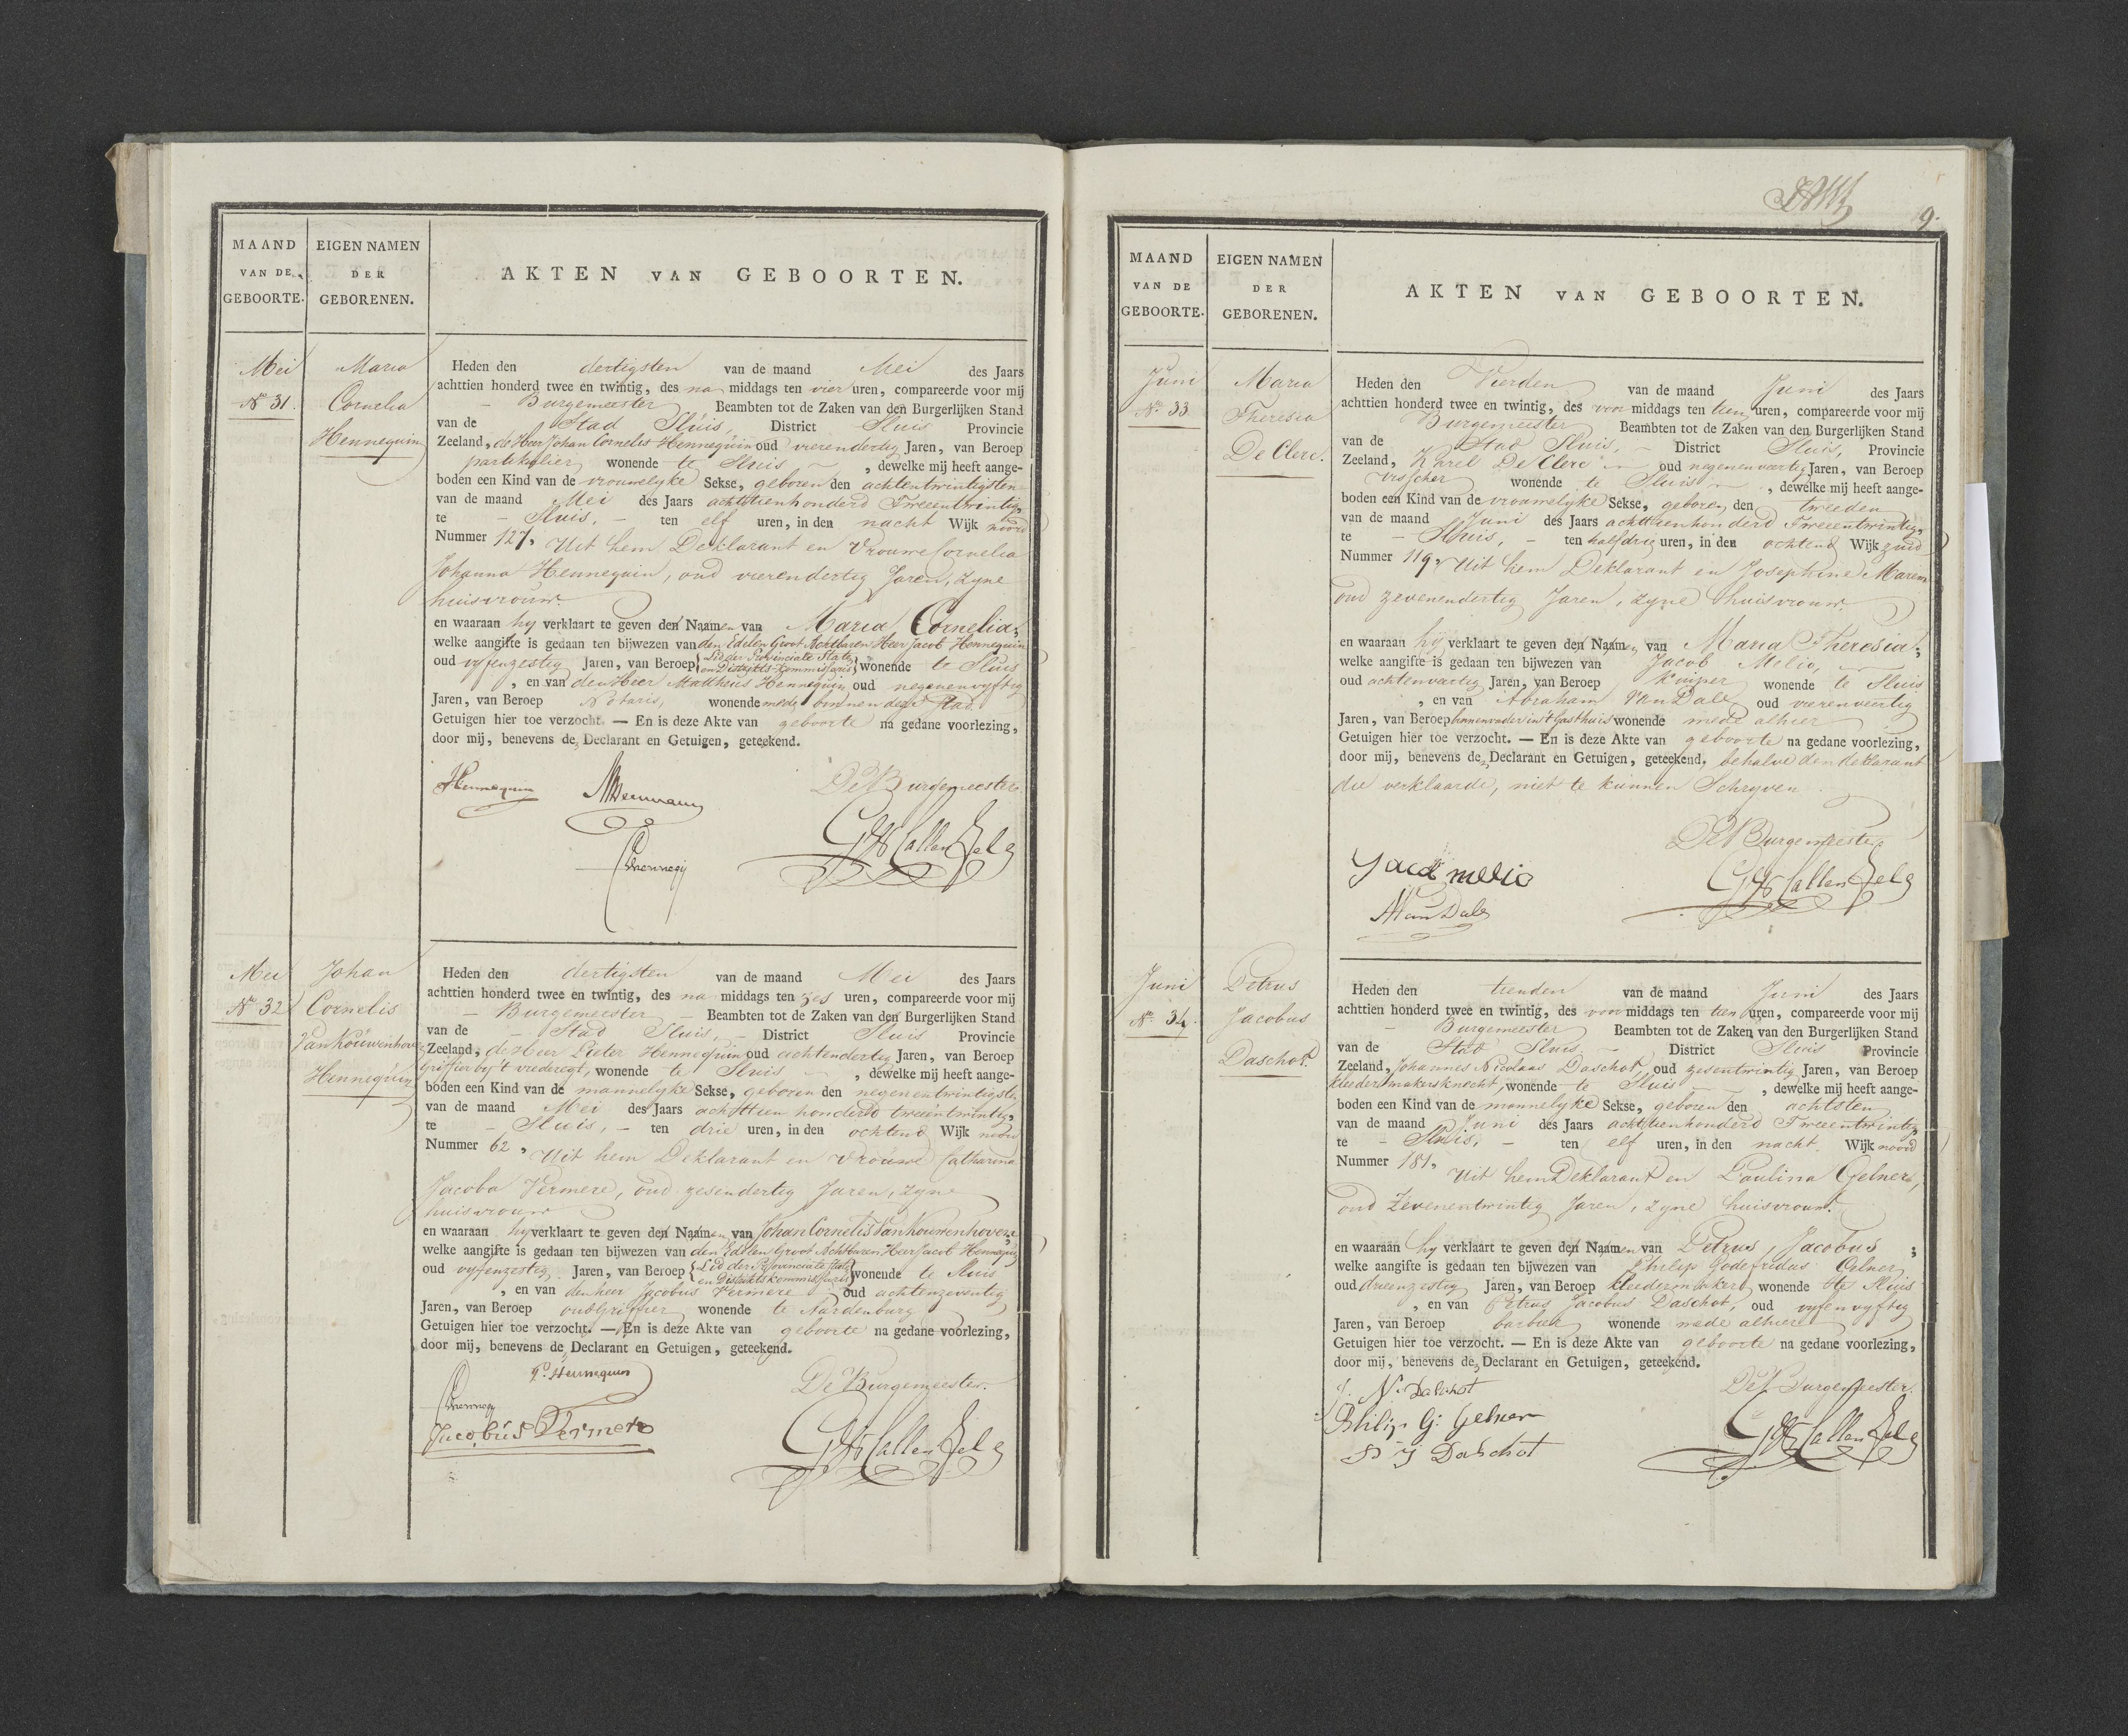 MAAND
VAN DE
GEBOORTE.
EIGEN NAMEN
DER
GEBORENEN.
AKTEN VAN GEBOORTEN.
Mei
No 31.
Maria
Cornelia
Hennequin
Heden den dertigsten van de maand Mei des Jaars
achttien honderd twee en twintig, des na middags ten vier uren, compareerde voor mij
- Burgemeester Beambten tot de Zaken van den Burgerlijken Stand
van de Stad Sluis, District Sluis Provincie
Zeeland, de Heer Johan Cornelis Hennequin oud vierendertig Jaren, van Beroep
partikulier wonende te Sluis , dewelke mij heeft aange-
boden een Kind van de vrouwelyke Sekse, geboren den achtentwintigsten
van de maand Mei des Jaars achttienhonderd Tweeentwintig,
te - Sluis, - ten elf uren, in den nacht Wijk noord
Nummer 127, Uit hem Deklarant en Vrouwe Cornelia
Johanna Hennequin, oud vierendertig Jaren, zyne
huisvrouw.
en waaraan hy verklaart te geven den Naamen van Maria Cornelia;
welke aangifte is gedaan ten bijwezen van den Edelen Groot Achtbaren Heer Jacob Hennequin
oud vyfenzestig Jaren, van Beroep {Lid der Provinciale Staten en Distrikts-Kommissaris} wonende te Sluis
, en van den Heer Mattheus Hennequin oud negenenvyftig
Jaren, van Beroep Notaris, wonende mede binnen deze Stad
Getuigen hier toe verzocht. — En is deze Akte van geboorte na gedane voorlezing,
door mij, benevens de Declarant en Getuigen, geteekend.
Hennequin
De Burgemeester
Mei
No 32
Johan
Cornelis
VanKouwenhoven
Hennequin
Heden den dertigsten van de maand Mei des Jaars
achttien honderd twee en twintig, des na middags ten zes uren, compareerde voor mij
- Burgemeester - Beambten tot de Zaken van den Burgerlijken Stand
van de - Stad Sluis, - District Sluis Provincie
Zeeland, de Heer Pieter Hennequin oud achtendertig Jaren, van Beroep
Griffier by 't vrederegt, wonende te Sluis , dewelke mij heeft aange-
boden een Kind van de mannelyke Sekse, geboren den negenentwintigsten
van de maand Mei des Jaars achttien honderd tweeentwintig,
te - Sluis, - ten drie uren, in den ochtend Wijk noord
Nummer 62, Uit hem Deklarant en Vrouwe Catharina
Jacoba Vermere, oud zesendertig Jaren, zyne
huisvrouw
en waaraan hy verklaart te geven den Naamen van Johan Cornelis VanKouwenhoven;
welke aangifte is gedaan ten bijwezen van den Edelen Groot Achtbaren Heer Jacob Hennequin
oud vyfenzestig Jaren, van Beroep {Lid der Provinciale Staten en Distrikts Kommissaris} wonende te Sluis
, en van den heer Jacobus Vermere oud achtenzeventig
Jaren, van Beroep oud Griffier wonende te Aardenburg
Getuigen hier toe verzocht. — En is deze Akte van geboorte na gedane voorlezing,
door mij, benevens de Declarant en Getuigen, geteekend.
P. Hennequin
De Burgemeester.
Jacobus Vermere
9.
MAAND
VAN DE
GEBOORTE.
EIGEN NAMEN
DER
GEBORENEN.
AKTEN VAN GEBOORTEN.
Juni
No. 33
Maria
Theresia
De Clerc.
Heden den Vierden van de maand Juni des Jaars
achttien honderd twee en twintig, des voor middags ten tien uren, compareerde voor mij
Burgemeester Beambten tot de Zaken van den Burgerlijken Stand
van de Stad Sluis, - District Sluis, Provincie
Zeeland, Karel De Clerc oud negenenveertig Jaren, van Beroep
Visscher wonende te Sluis , dewelke mij heeft aange-
boden een Kind van de vrouwelyke Sekse, geboren den tweeden
van de maand Juni des Jaars achttienhonderd Tweeentwintig,
te - Sluis, - ten halfdrie uren, in den ochtend Wijk zuid
Nummer 119, Uit hem Deklarant en Josephine Marem
oud zevenendertig Jaren, zyne huisvrouw.
en waaraan hij verklaart te geven den Naamen van Maria Theresia;
welke aangifte is gedaan ten bijwezen van Jacob Melio,
oud achtenveertig Jaren, van Beroep Kuiper wonende te Sluis
, en van Abraham VanDale oud vierenveertig
Jaren, van Beroep binnenvader in 't Gasthuis wonende mede alhier
Getuigen hier toe verzocht. — En is deze Akte van geboorte na gedane voorlezing,
door mij, benevens de Declarant en Getuigen, geteekend, behalve den deklarant
die verklaarde, niet te kunnen Schryven.
De Burgemeester
Jacob melio
A VanDale
Juni
No. 34.
Petrus
Jacobus
Daschot.
Heden den tienden van de maand Juni des Jaars
achttien honderd twee en twintig, des voor middags ten tien uren, compareerde voor mij
- Burgemeester Beambten tot de Zaken van den Burgerlijken Stand
van de Stad Sluis - District Sluis Provincie
Zeeland, Johannes Nicolaas Daschot, oud zesentwintig Jaren, van Beroep
kleedermakersknecht, wonende te Sluis , dewelke mij heeft aange-
boden een Kind van de mannelyke Sekse, geboren den achtsten
van de maand Juni des Jaars achttienhonderd Tweeentwintig
te - Sluis, - ten elf uren, in den nacht Wijk noord
Nummer 181, Uit hem Deklarant en Paulina Gelner,
oud Zevenentwintig Jaren, zyne huisvrouw.
en waaraan hy verklaart te geven den Naamen van Petrus Jacobus ;
welke aangifte is gedaan ten bijwezen van Philip Godefridus Gelner,
oud drieenzestig Jaren, van Beroep kleedermaker, wonende te Sluis
, en van Petrus Jacobus Daschot, oud vyfenvyftig
Jaren, van Beroep barbier wonende mede alhier
Getuigen hier toe verzocht. — En is deze Akte van geboorte na gedane voorlezing,
door mij, benevens de Declarant en Getuigen, geteekend.
J. N. Daschot
De Burgemeester.
Philip G: Gelner
P J Daschot